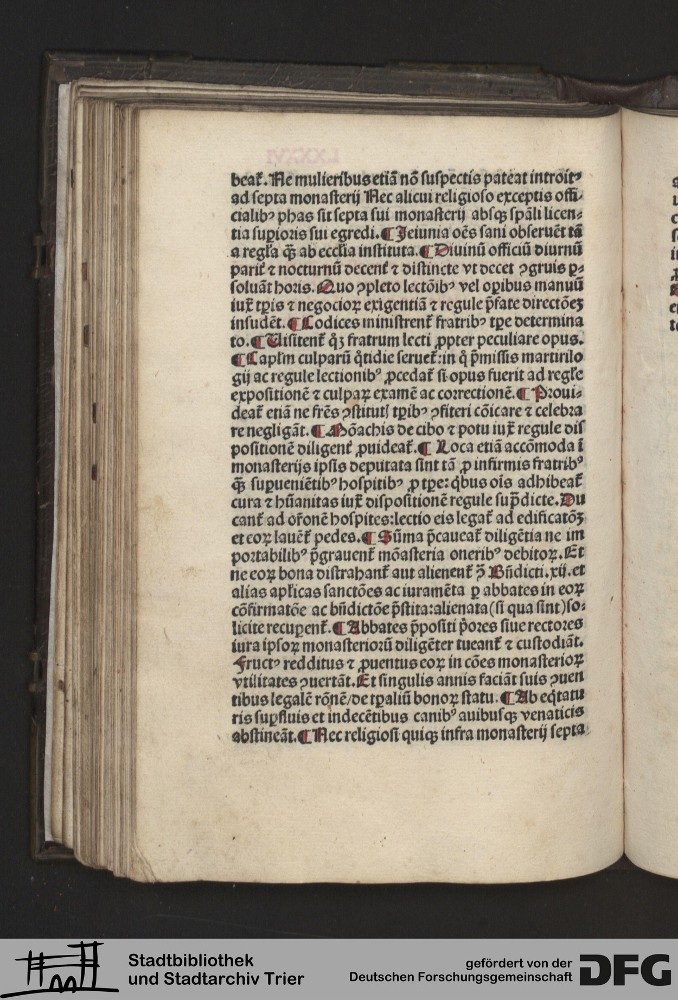 beat᷑. Ne mulieribus etiā nō suspectis pateat introitꝰ
ad septa monasterij Nec alicui religioso exceptis offi⸗
cialibꝰ phas sit septa sui monasterij absqꝫ spāli licen⸗
tia supīoris sui egredi. ¶ Jeiunia oēs sani obseruēt tā
a regl̄a q̄ꝫ ab ecclīa instituta. ¶ Diuinū officiū diurnū
parit᷑ ⁊ nocturnū decent᷑ ⁊ distincte vt decet ꝯgruis ꝑ⸗
soluāt horis. Quo ꝯpleto lectōibꝰ vel oꝑibus manuū
iuꝭ tꝑis ⁊ negocioꝝ exigentiā ⁊ regule p̄fate directōeꝫ
insudēt. ¶ Codices ministrent᷑ fratribꝰ tꝑe determina
to. ¶ Uisitent᷑ qꝫ fratrum lecti ꝓpter peculiare opus.
¶ Capl̄m culparū q̄tidie seruet᷑: in q̄ p̄missis martirilo
gij ac regule lectionibꝰ ꝓcedat᷑ si opus fuerit ad regl̄e
expositionē ⁊ culpaꝝ examē ac correctionē. ¶ Proui⸗
deat᷑ etiā ne frēs ꝯstitutꝭ tꝑibꝰ ꝯfiteri cōicare ⁊ celebra
re negligāt. ¶ Mōachis de cibo ⁊ potu iuꝭ regule dis
positionē diligent᷑ ꝓuideat᷑. ¶ Loca etiā accōmoda ī
monasterijs ipsis deputata sint tā ꝓ infirmis fratribꝰ
q̄ꝫ suꝑueniētibꝰ hospitibꝰ ꝓ tꝑe: q̄bus oīs adhibeat᷑
cura ⁊ hūanitas iuꝭ dispositionē regule sup̄dicte. Du
cant᷑ ad or̄onē hospites: lectio eis legat᷑ ad edificatōꝫ
et eoꝝ lauēt᷑ pedes. ¶ Sūma p̄caueat᷑ diligētia ne im
portabilibꝰ p̄grauent᷑ mōasteria oneribꝰ debitoꝝ. Et
ne eoꝝ bona distrahant᷑ aut alienent᷑ ꝯ̄ Bn̄dicti. xij. et
alias apl̄icas sanctōes ac iuramēta ꝑ abbates in eoꝝ
cōfirmatōe ac bn̄dictōe p̄stita: alienata (si qua sint) so⸗
licite recuꝑent᷑. ¶ Abbates p̄positi p̄ores siue rectores
iura ipsoꝝ monasterioꝝ diligēter tueant᷑ ⁊ custodiāt.
Fructꝰ redditus ⁊ ꝓuentus eoꝝ in cōes monasterioꝝ
vtilitates ꝯuertāt. Et singulis annis faciāt suis ꝯuen
tibus legalē rōnē/de tꝑaliū bonoꝝ statu. ¶ Ab eq̄tatu
ris suꝑfluis et indecētibus canibꝰ auibusqꝫ venaticis
abstineāt. ¶ Nec religiosi quiqꝫ infra monasterij septa
Stadtbibliothek
und Stadtarchiv Trier
gefördert von der
Deutschen Forschungsgemeinschaft
DFG